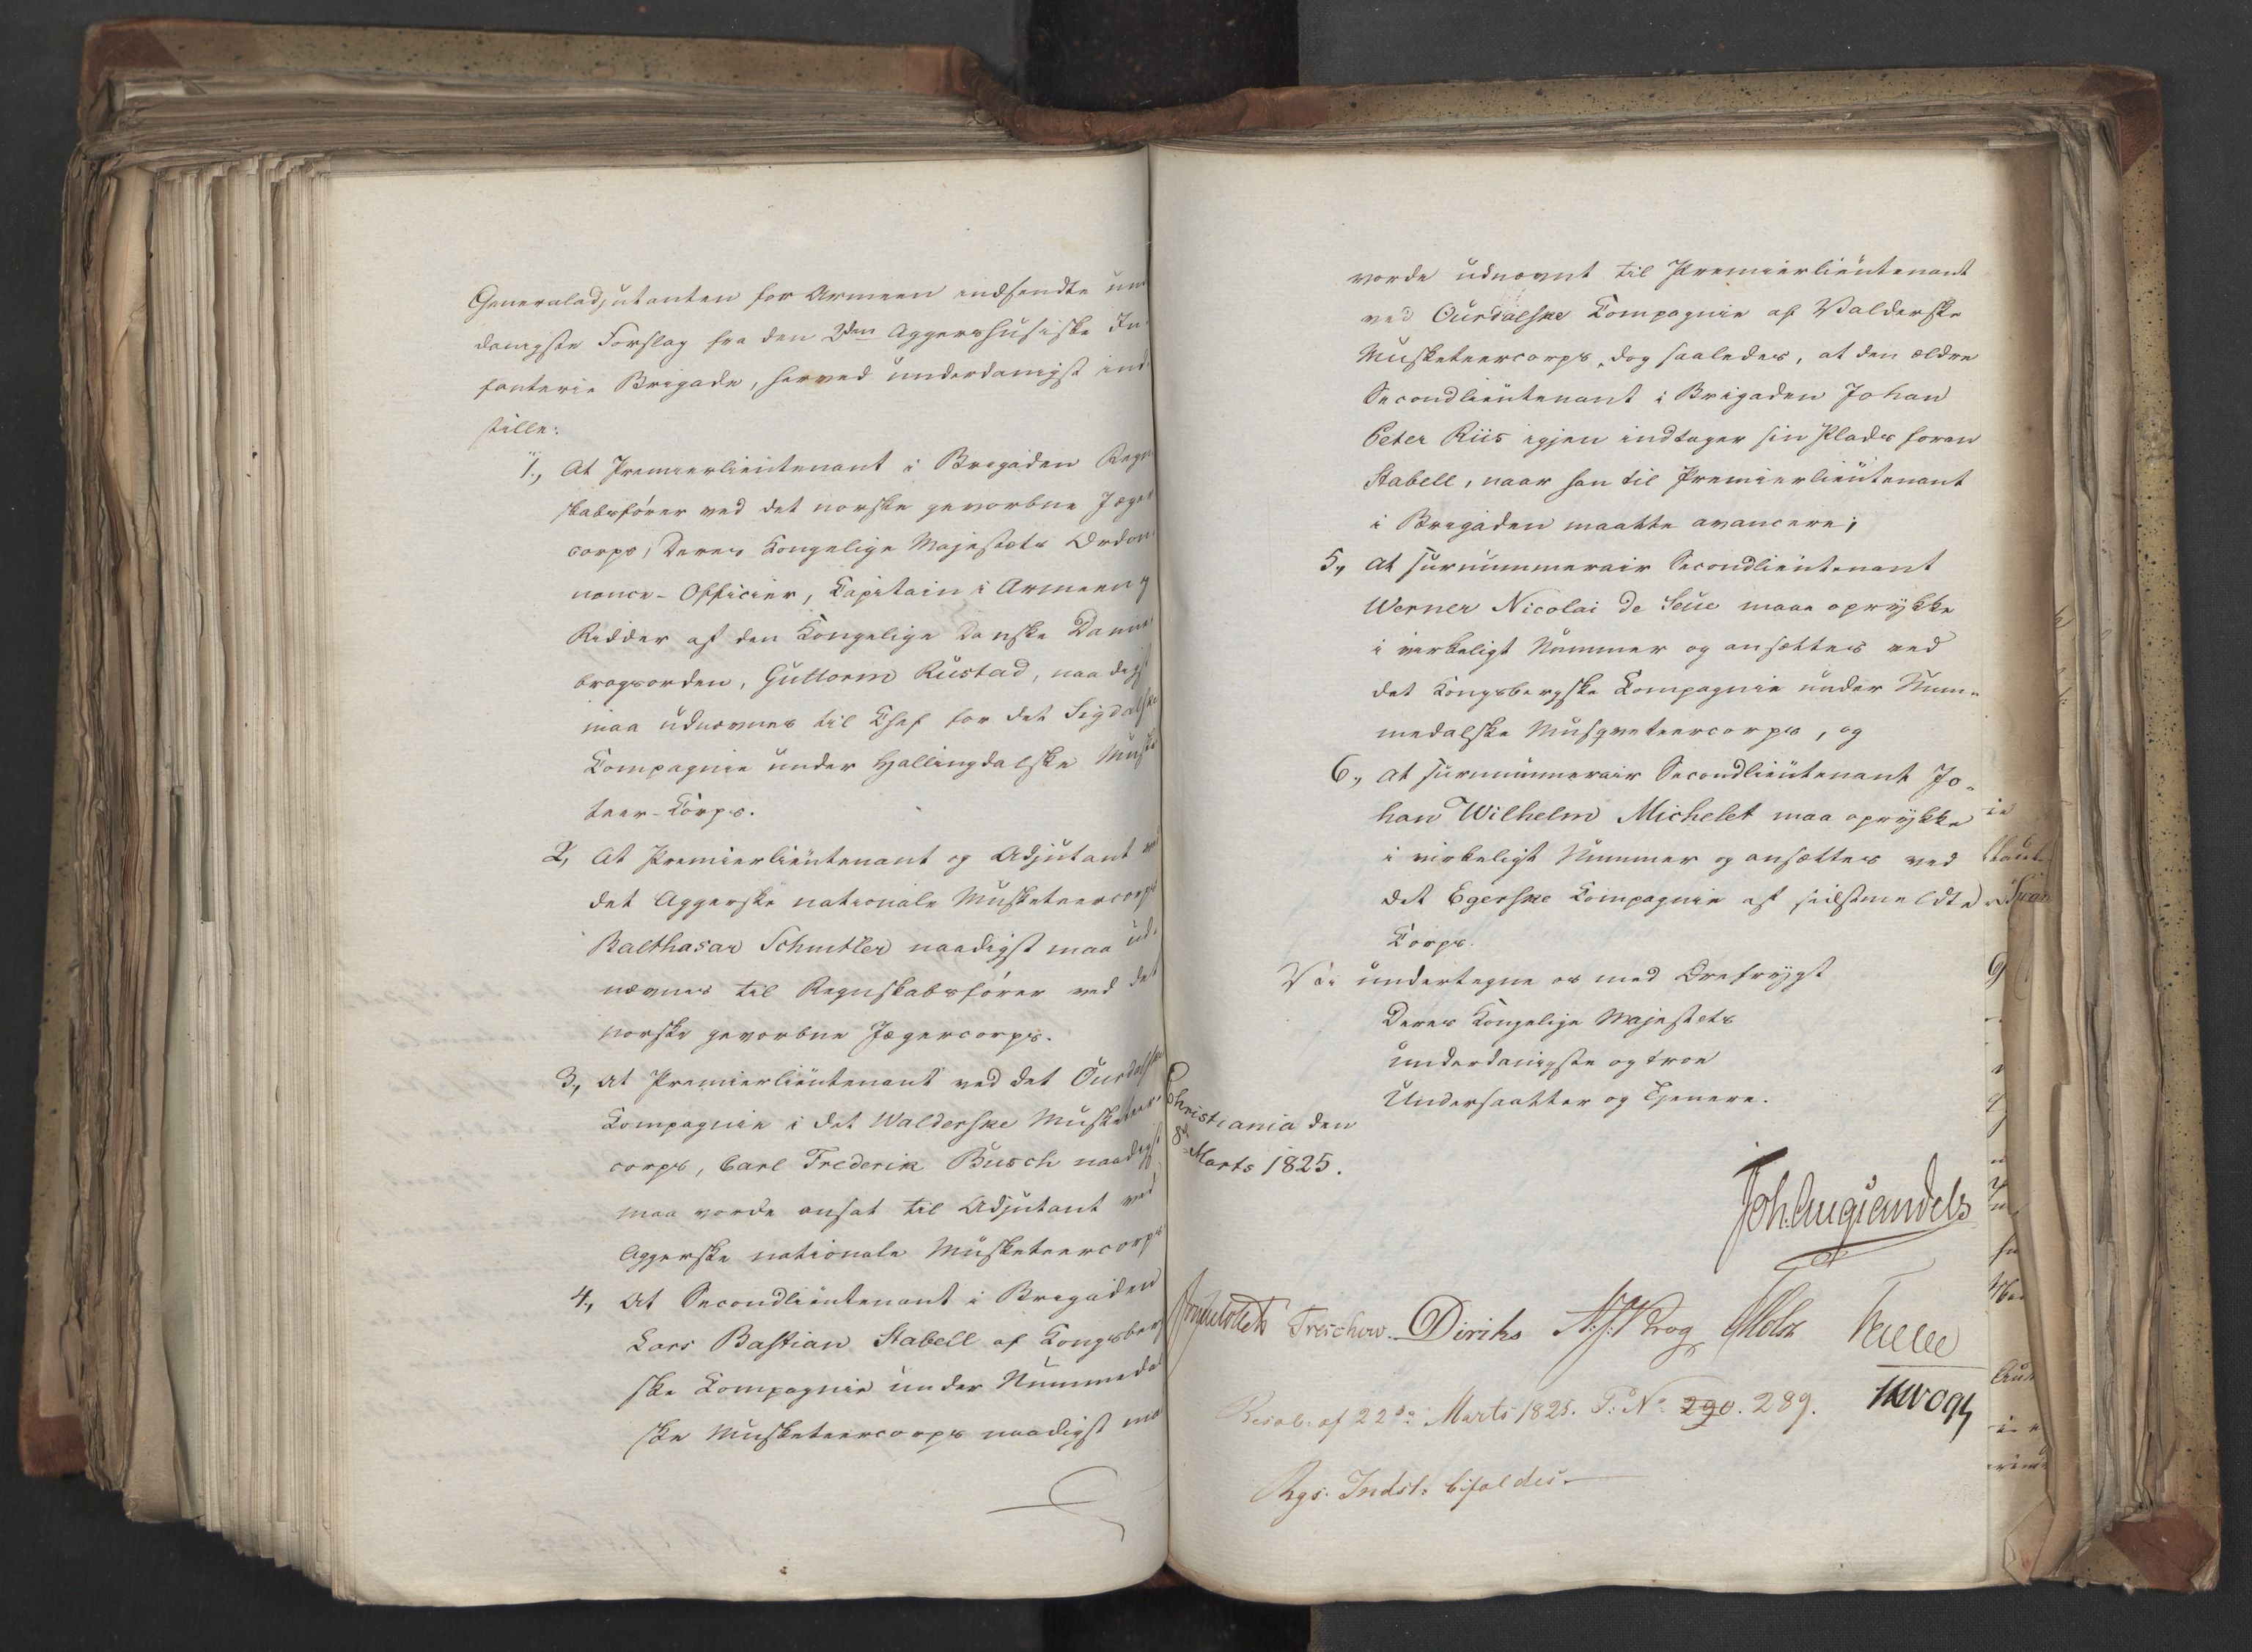 Generaladjutanten for Armeen indsendte un
danigste Forslag fra den 2den Aggershusiske In
fanterie Brigade, herved underdanigst ind
stille:
1., At Premierlieutenant i Brigaden Regn
skabsfører ved det norske gevorbne Jæger
corps, Deres Kongelige Majestæts Ordon
nance-Officier, Capitain i Armeen og
Ridder af den Kongelige danske Danne
brogsorden, Guttorm Rustad, naadigst
maa udnævnes til Chef for det Sigdalske
Compagnie under Hallingdalske Muske
teer-Corps.
2, At Premierlieutenant og Adjutant ved
det Aggerske nationale Musketeercorps
Balthasar Schnitler naadigst maa ud
nævnes til Regnskabsfører ved det
norske gevorbne Jægercorps.
3, At Premierlieutenant ved det Ourdalske
Compagnie i det Walderske Musketeer
corps, Carl Frederik Busch naadigst
maa vorde ansat til Adjutant ved
Aggerske nationale Musketeercorps
4., At Secondlieutenant i Brigaden
Lars Bastian Stabell af Kongsberg
ske Compagnie under Nummedal
ske Musketeercorps naadigst maa
vorde udnævnt til Premierlieutenant
ved Ourdalske Compagnie af Valderske
Musketeercorps, dog saaledes, at den ældre
Secondlieutenant i Brigaden Johan
Peter Riis igjen indtager sin Plads foran
Stabell, naar han til Premierlieutenant
i Brigaden maatte avancere;
5, At surnummerair Secondlieutenant
Werner Nicolai de Seue maae oprykke
i virkeligt Nummer og ansættes ved
det Kongsbergske Compagnie under Num-
medalske Musqveteercorps, og
6, At surnummerair Secondlieutenant Jo-
han Wilhelm Michelet maa oprykke
i virkeligt Nummer og ansættes ved
det Egerske Compagnie af sidstmeldte
Corps.
Vi undertegne os med Ærefrygt
Deres Kongelige Majestæts
underdanigste og troe
Undersaatter og Tjenere.
Christiania den
8de Marts 1825.
Joh. Aug Sandels
Treschow. Diriks A. J. Krog
Resol: af 22de Marts 1825. P: No 290. 289.
Rgs. Indst: bifaldes